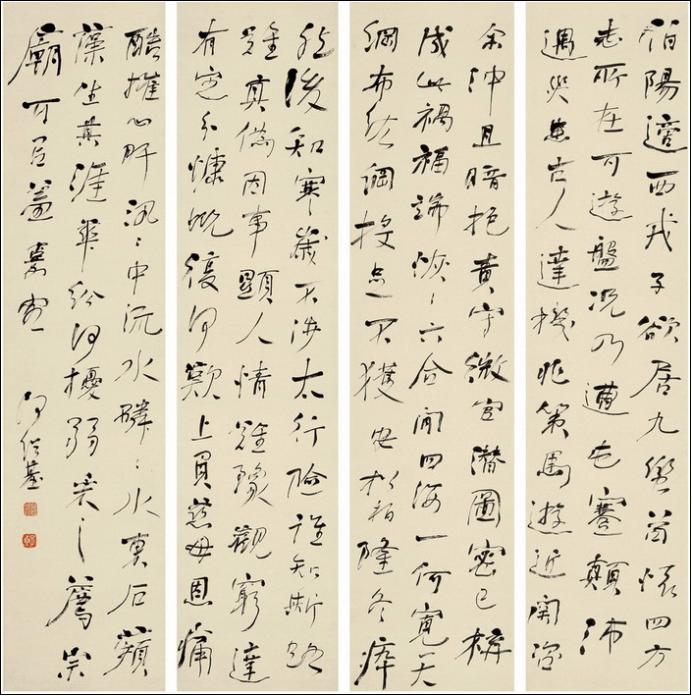 伯陽適西戎子欲居九蠻苟懷四方
志所在可遊盤況乃遭屯蹇顛沛
遇災患古人達機兆策馬遊近關咨
余沖且暗抱責守微官潛圖密已構
成此禍福端恢〻六合間四海一何寬天
網布紘綱投足不獲安松柏隆冬瘁
然後知寒歲不涉太行險誰知斯路
難真偽因事顯人情難豫觀窮達
有定分慷慨復何歎上負慈母恩痛
酷摧心肝汎〻中沅水磷〻水裏石蘋
藻生其涯華紛何擾弱采之薦宗
廟可以羞嘉客
何紹基